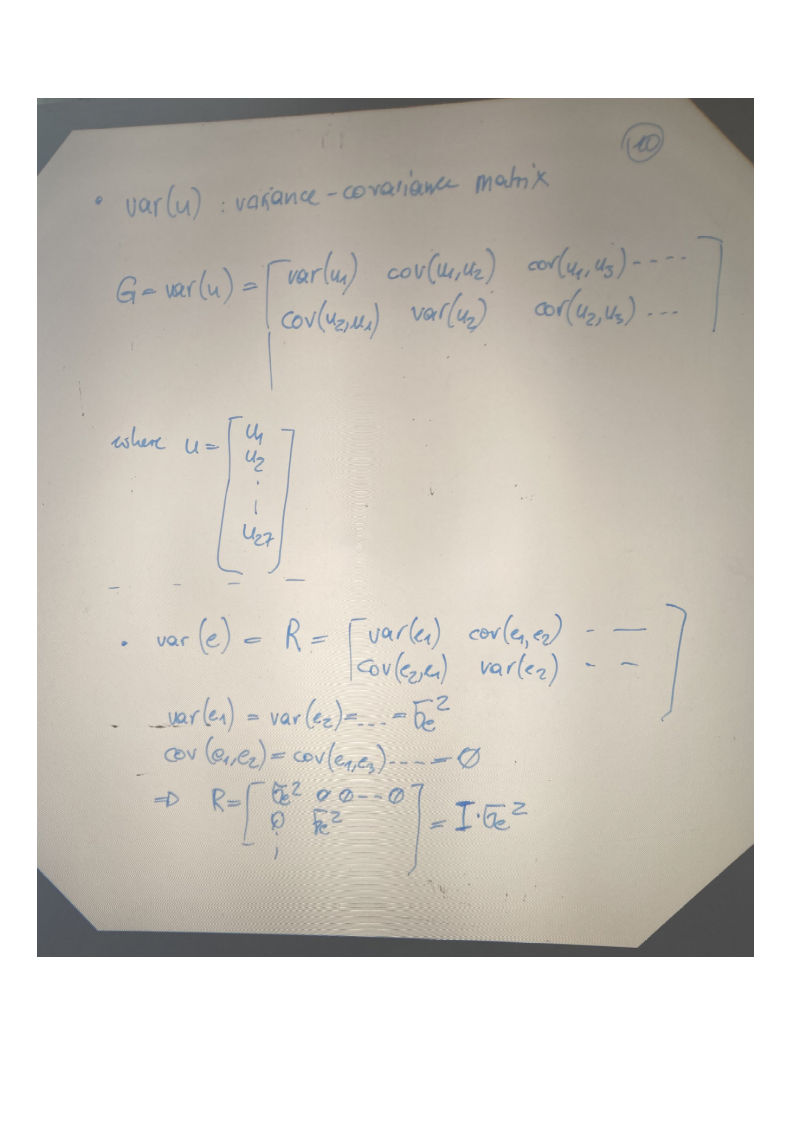 10
• var(u) : variance-covariance matrix
G = var(u) = [ var(u1) cov(u1,u2) cov(u1,u3) ----
cov(u2,u1) var(u2) cov(u2,u3) --- ]
where u = [ u1
u2
⋮
u27 ]
- - - -
• var(e) = R = [ var(e1) cov(e1,e2) - —
cov(e2,e1) var(e2) - - ]
var(e1) = var(e2) = ... = σe²
cov(e1,e2) = cov(e1,e3) .... = ∅
⇒ R = [ σe² ∅ ∅ -- ∅
∅ σe²
⋮ ] = I · σe²